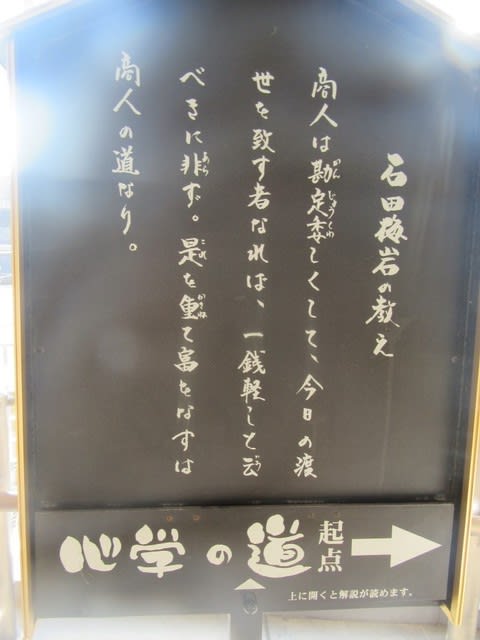 石田梅岩の教え
商人は勘定委しくして、今日の渡
世を致す者なれば、一銭軽しと云
べきに非ず。是を重て富をなすは
商人の道なり。
心学の道 起点
上に開くと解説が読めます。